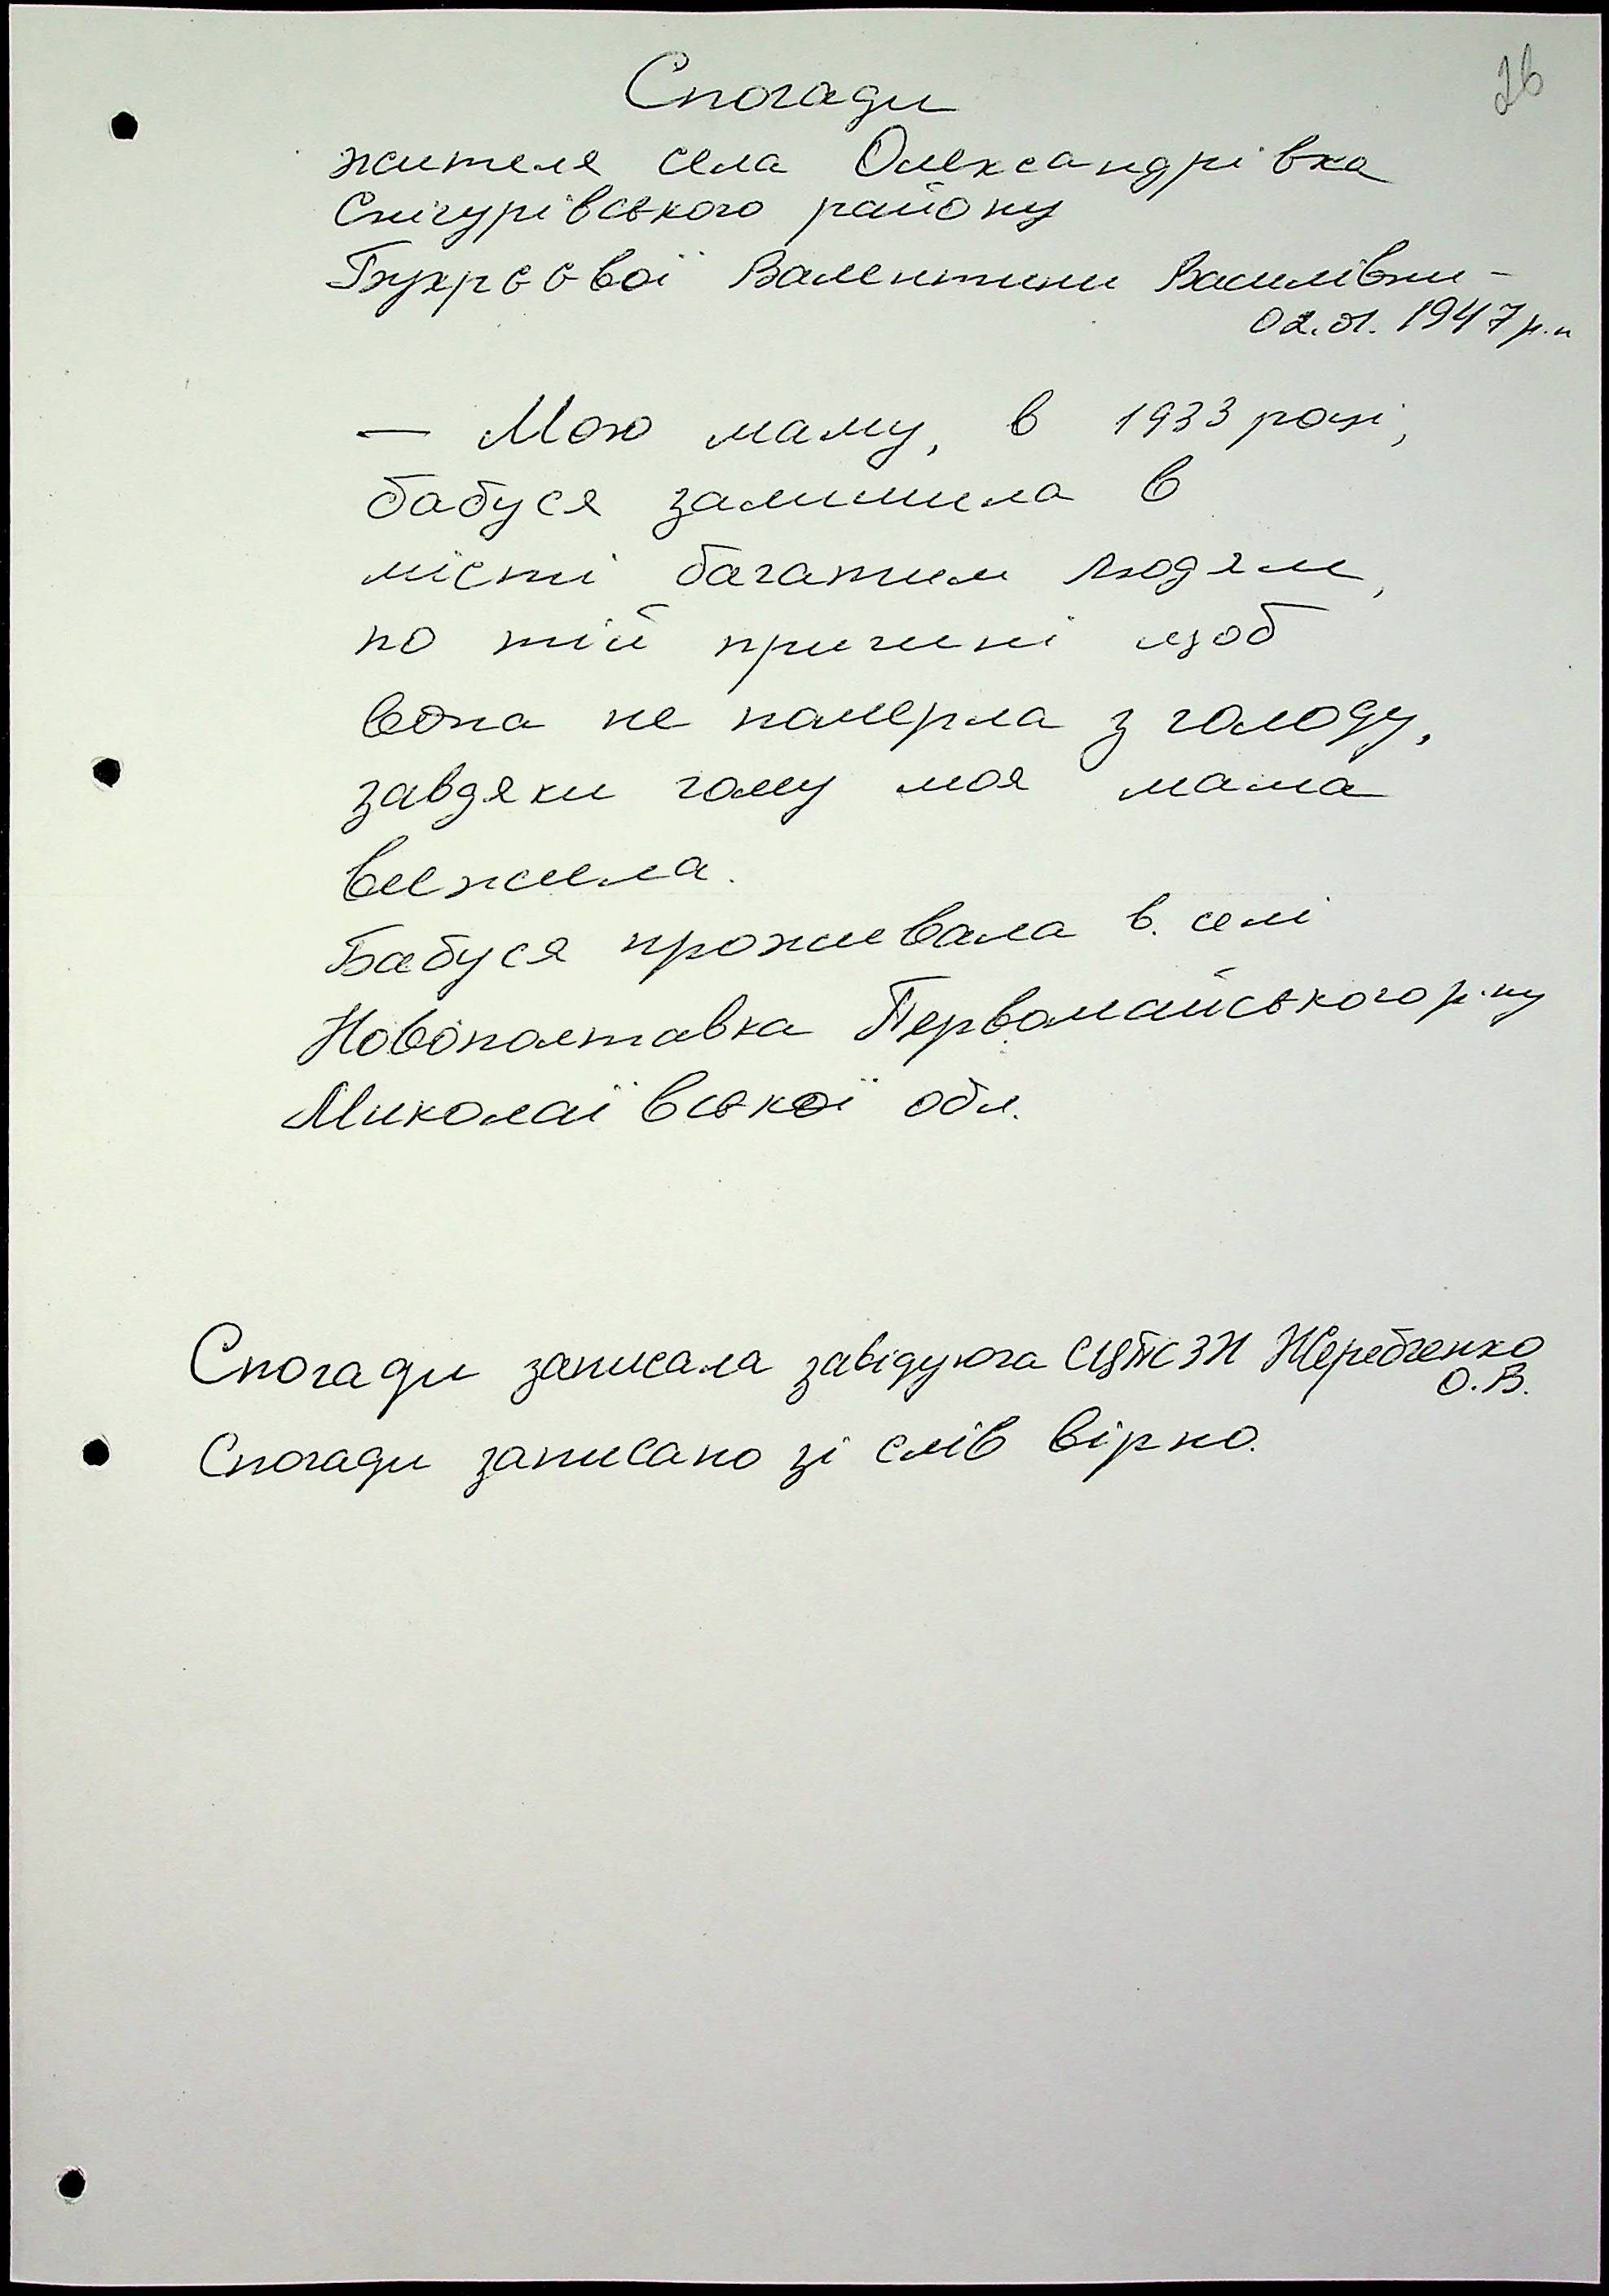 26
Спогади
жителя села Олександрівка
Снігурівського району
Валентини Василівни –
02.01.1947 р.н
— Мою маму, в 1933 році,
бабуся залишила в
місті багатим людям,
по тій причині щоб
вона не померла з голоду,
завдяки чому моя мама
вижила.
Бабуся проживала в. селі
Новополтавка Первомайського р-ну
Миколаївської обл.
Спогади записала завідуюча СЦПСЗН Жеребченко
О.В.
Спогади записано зі слів вірно.